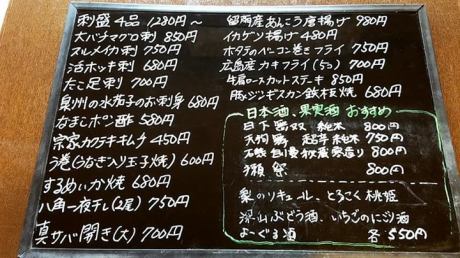 刺盛4品 1280円～
大バチマグロ刺 850円
スルメイカ刺 750円
活ホッキ刺 680円
たこ足刺 700円
泉州の水茄子のお刺身 680円
なまこポン酢 580円
宗家カクテキキムチ 450円
う巻(うなぎ入り玉子焼) 600円
するめいか焼 680円
八角一夜干し(2尾) 750円
真サバ開き(大) 700円
留萌産あんこう唐揚げ 980円
イカゲソ揚げ 480円
ホタテのベーコン巻きフライ 750円
広島産カキフライ(5コ) 700円
牛肩ロースカットステキ 850円
豚ジンギスカン鉄板焼 680円
日本酒、果実酒 おすすめ
日下無双 純米 800円
天狗舞 超辛純米 750円
石鎚 自慢 800円
獺祭 800円
梨のリキュール、とろこく桃姫
沢山ぶどう酒、いちごのにごり酒
よーぐる酒 各550円